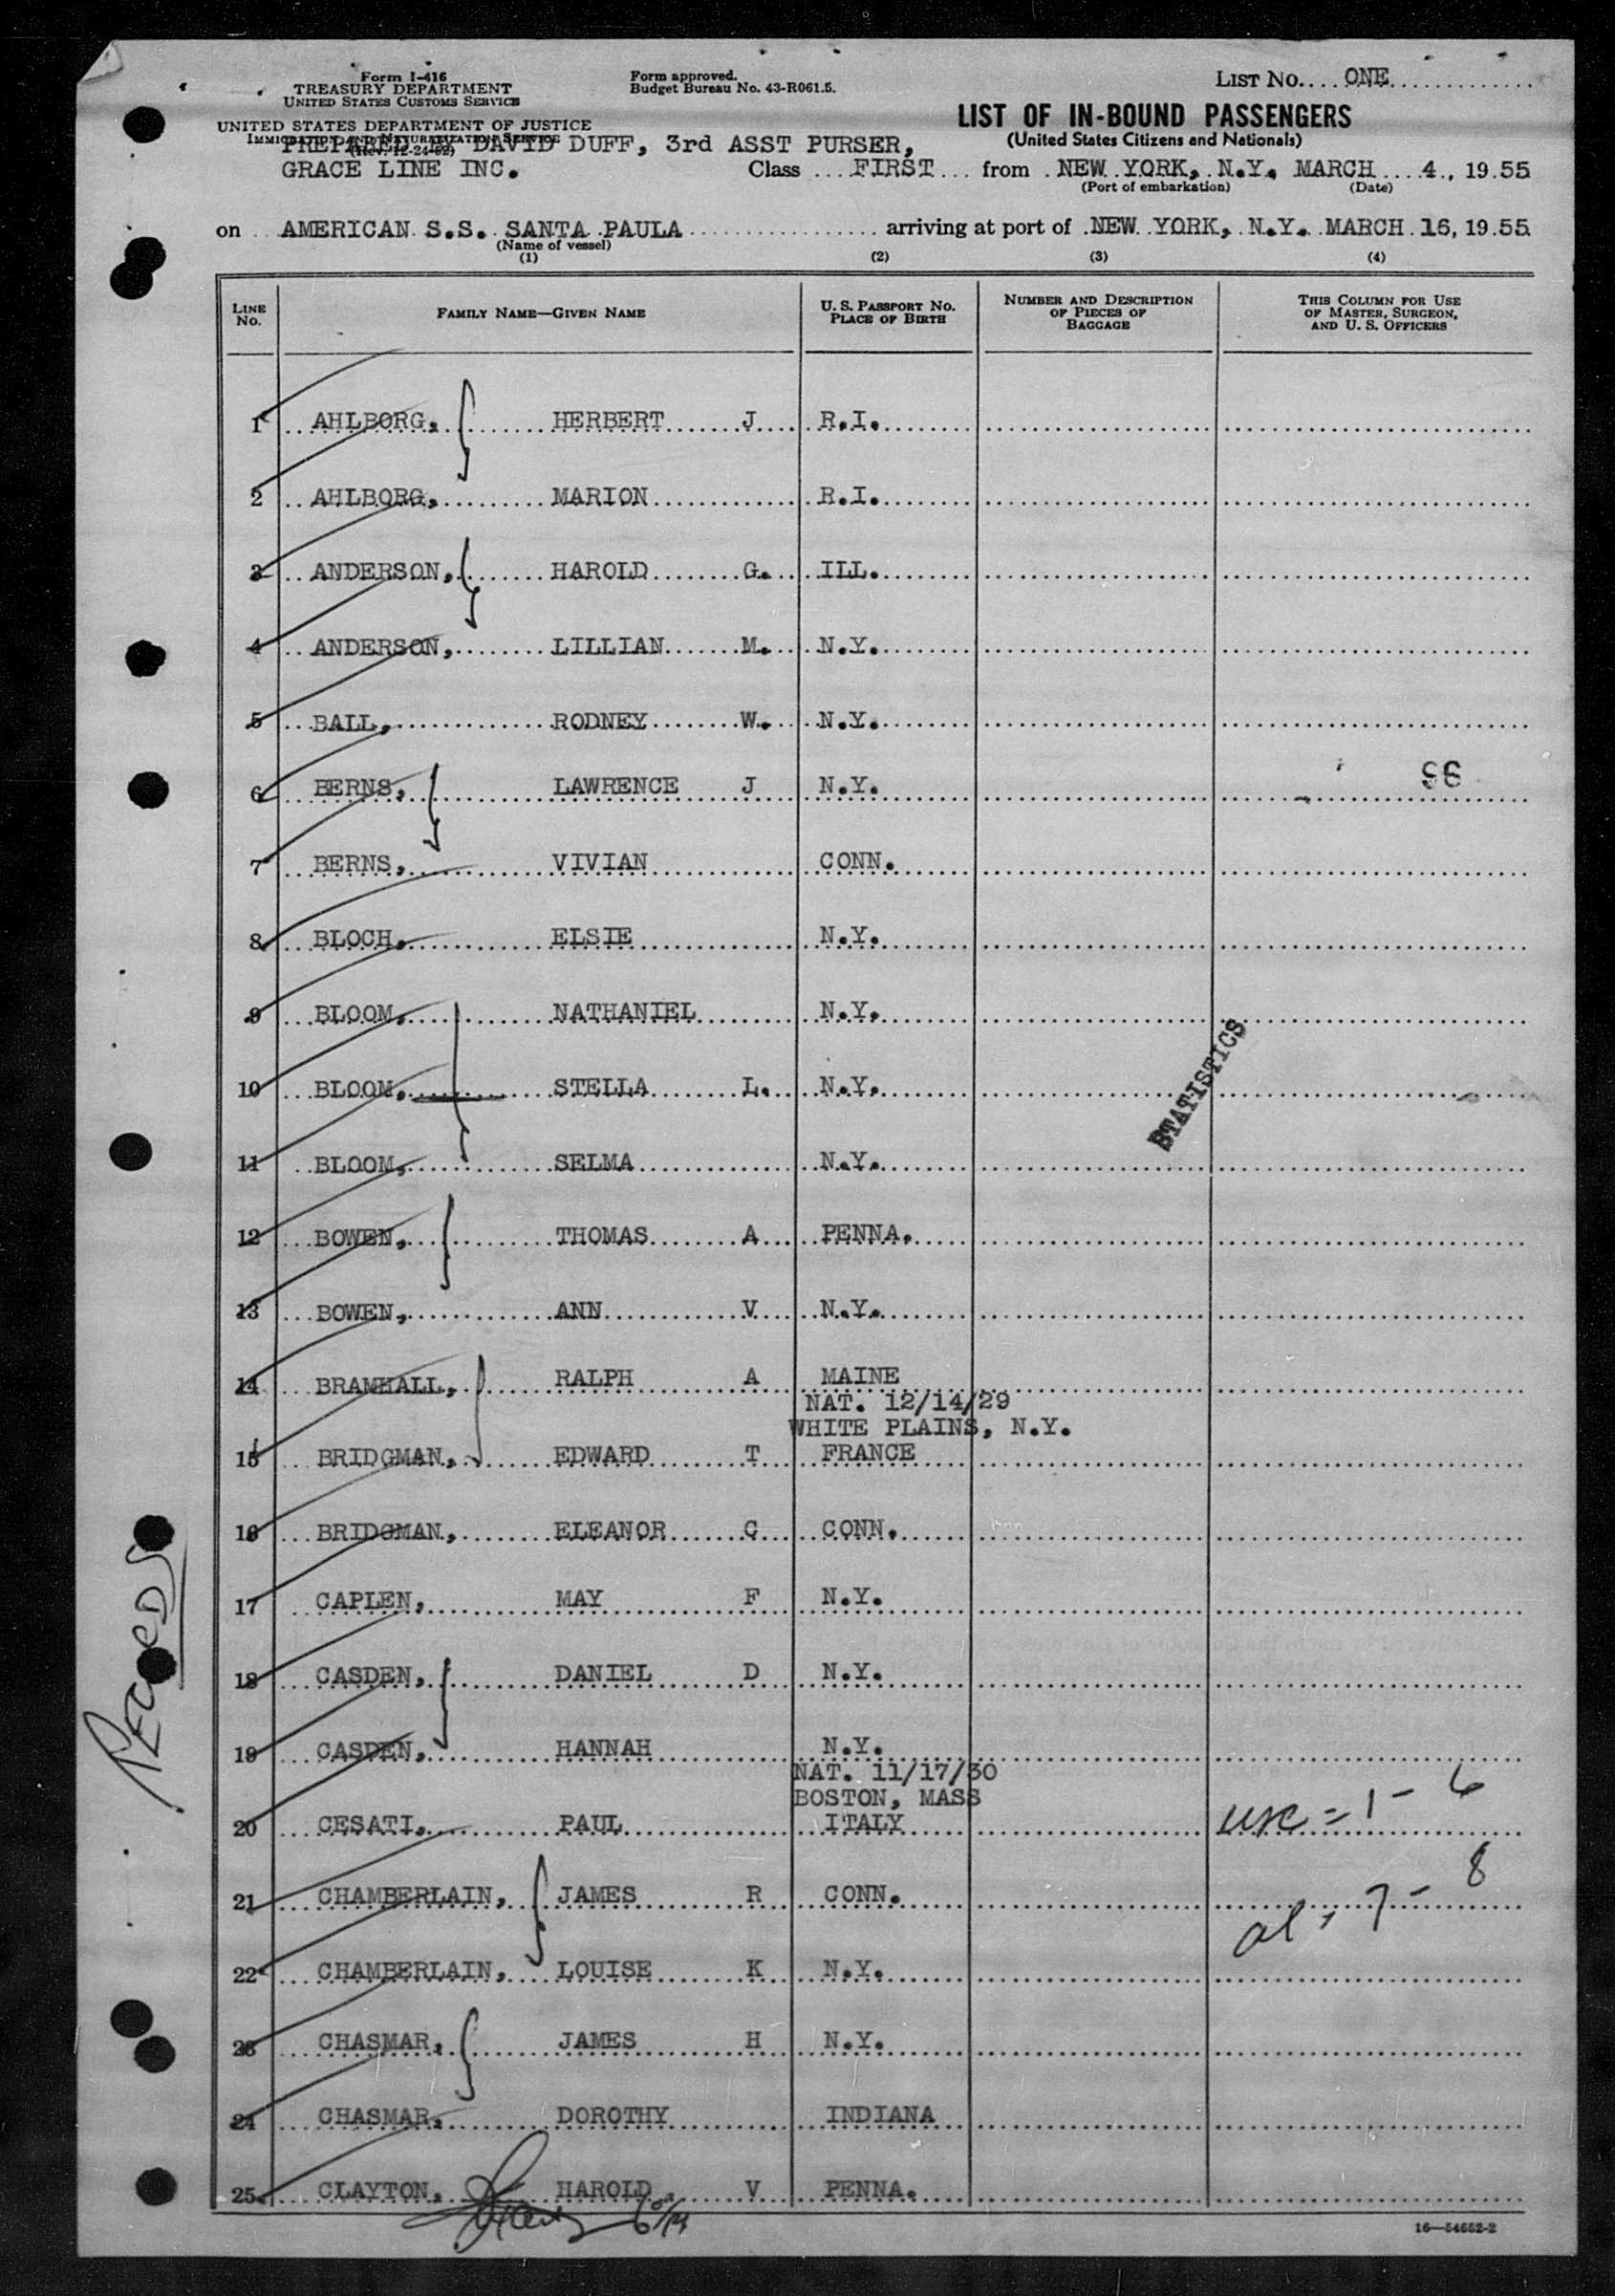 Form I-416
TREASURY DEPARTMENT
UNITED STATES CUSTOMS SERVICE
UNITED STATES DEPARTMENT OF JUSTICE
IMMIGRATION AND NATURALIZATION SERVICE
(Rev. 12-24-52)
Form approved.
Budget Bureau No. 43-R061.5.
LIST No. ONE
LIST OF IN-BOUND PASSENGERS
(United States Citizens and Nationals)
PREPARED BY DAVID DUFF, 3rd ASST PURSER,
GRACE LINE INC.
Class FIRST from NEW YORK, N.Y. MARCH 4, 1955
(Port of embarkation) (Date)
on AMERICAN S.S. SANTA PAULA arriving at port of NEW YORK, N.Y. MARCH 16, 1955
(Name of vessel)
(1) (2) (3) (4)
LINE No. FAMILY NAME—GIVEN NAME U. S. PASSPORT No. PLACE OF BIRTH NUMBER AND DESCRIPTION OF PIECES OF BAGGAGE THIS COLUMN FOR USE OF MASTER, SURGEON, AND U. S. OFFICERS
1 AHLBORG, HERBERT J R.I.
2 AHLBORG, MARION R.I.
3 ANDERSON, HAROLD G. ILL.
4 ANDERSON, LILLIAN M. N.Y.
5 BALL, RODNEY W. N.Y.
6 BERNS, LAWRENCE J N.Y.
7 BERNS, VIVIAN CONN.
8 BLOCH, ELSIE N.Y.
9 BLOOM, NATHANIEL N.Y.
10 BLOOM, STELLA L. N.Y.
STATISTICS
11 BLOOM, SELMA N.Y.
12 BOWEN, THOMAS A PENNA.
13 BOWEN, ANN V N.Y.
14 BRAMHALL, RALPH A MAINE
NAT. 12/14/29
WHITE PLAINS, N.Y.
15 BRIDGMAN, EDWARD T FRANCE
16 BRIDGMAN, ELEANOR G CONN.
17 CAPLEN, MAY F N.Y.
18 CASDEN, DANIEL D N.Y.
19 CASDEN, HANNAH N.Y.
NAT. 11/17/30
BOSTON, MASS
20 CESATI, PAUL ITALY usc = 1 - 6
21 CHAMBERLAIN, JAMES R CONN. al, 7 - 8
22 CHAMBERLAIN, LOUISE K N.Y.
23 CHASMAR, JAMES H N.Y.
24 CHASMAR, DOROTHY INDIANA
25 CLAYTON, HAROLD V PENNA.
16—54652-2